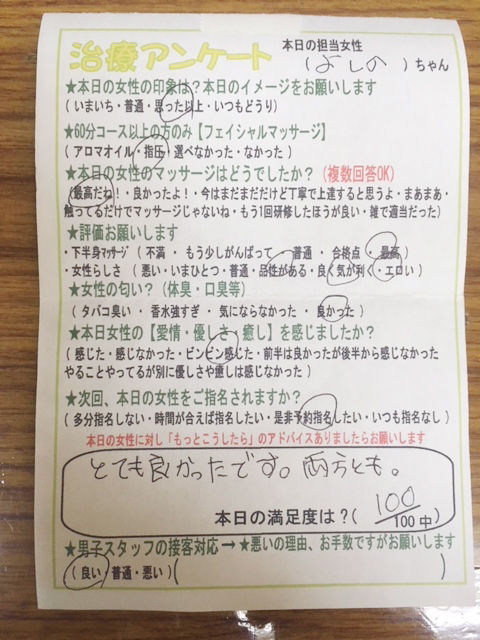 治療アンケート 本日の担当女性
( よしの )ちゃん
★本日の女性の印象は?本日のイメージをお願いします
( いまいち・普通・思った以上・いつもどうり)
★60分コース以上の方のみ【フェイシャルマッサージ】
( アロマオイル・指圧)選べなかった・なかった )
★本日の女性のマッサージはどうでしたか? (複数回答OK)
(最高だね!・良かったよ!・今はまだまだだけど丁寧で上達すると思うよ・まあまあ・
触ってるだけでマッサージじゃないね・もう1回研修したほうが良い・雑で適当だった)
★評価お願いします
・下半身マッサージ ( 不満 ・ もう少しがんばって ・ 普通 ・ 合格点 ・ 最高 )
・女性らしさ ( 悪い・いまひとつ・普通・品性がある・良く気が利く・エロい )
★女性の匂い? (体臭・口臭等)
( タバコ臭い ・ 香水強すぎ ・ 気にならなかった ・ 良かった )
★本日女性の【愛情・優しさ・癒し】を感じましたか?
( 感じた・感じなかった・ビンビン感じた・前半は良かったが後半から感じなかった
やることやってるが別に優しさや癒しは感じなかった )
★次回、本日の女性をご指名されますか?
( 多分指名しない・時間が合えば指名したい・是非予約指名したい・いつも指名なし )
本日の女性に対し「もっとこうしたら」のアドバイスありましたらお願いします
とても良かったです。両方とも。
本日の満足度は?( 100/100中)
★男子スタッフの接客対応→★悪いの理由、お手数ですがお願いします
( 良い・普通・悪い ) ( )